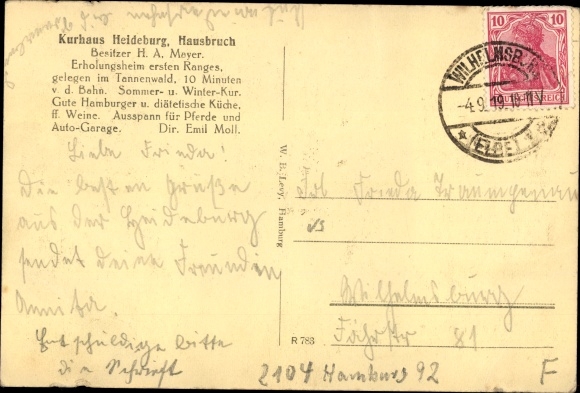 Kurhaus Heideburg, Hausbruch
Besitzer H. A. Meyer.
Erholungsheim ersten Ranges,
gelegen im Tannenwald, 10 Minuten
v. d. Bahn. Sommer- u. Winter-Kur.
Gute Hamburger u. diätetische Küche.
ff. Weine. Ausspann für Pferde und
Auto-Garage. Dir. Emil Moll.
Liebe Frieda!
Die besten Grüße
aus der Heideburg
sendet deine Freundin
Annita.
Entschuldige bitte
die Schrift
W. H. Levy, Hamburg
R 783
10 10
DEUTSCHES REICH
WILHELMSBURG
-4.9.19.
(ELBE)
Frieda Traumgenau
Wilhelmsburg
Fährstr 81
2104 Hamburg 92
F